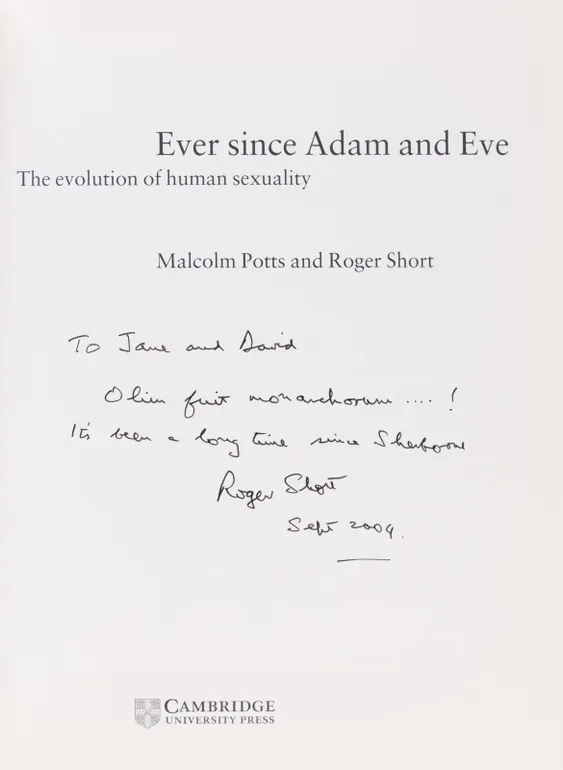 Ever since Adam and Eve
The evolution of human sexuality
Malcolm Potts and Roger Short
To Jane and David
Olim fuit monachorum .... !
It's been a long time since Sherborne
Roger Short
Sept 2009.
CAMBRIDGE
UNIVERSITY PRESS